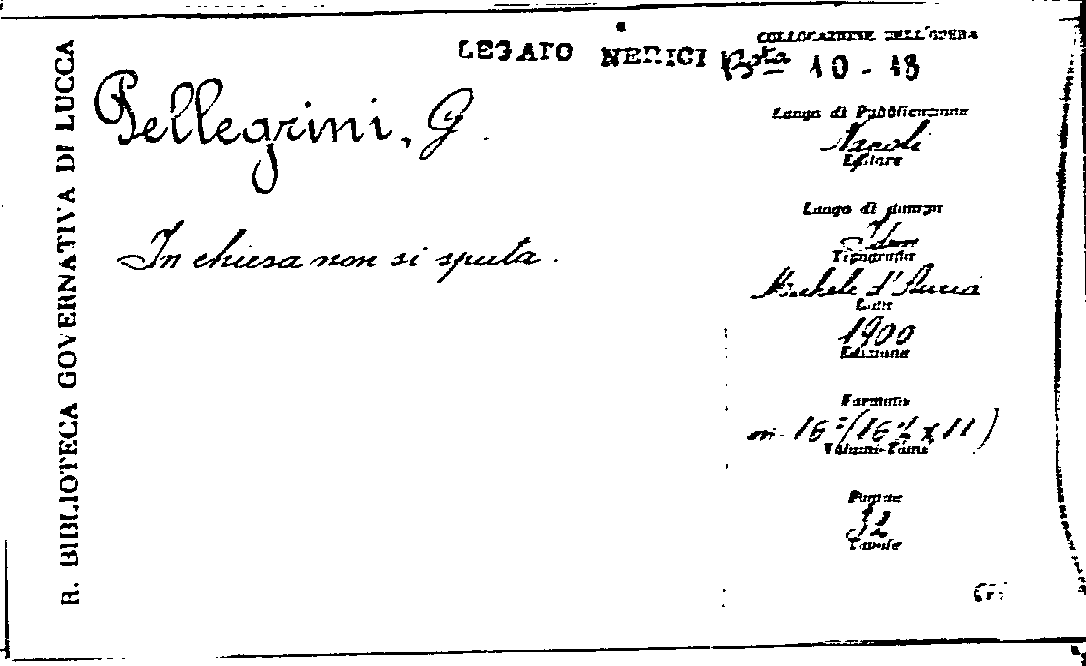 R. BIBLIOTECA GOVERNATIVA DI LUCCA
LEGATO NERICI
COLLOCAZIONE DELL'OPERA
Bsta 10 - 18
Pellegrini, G.
In chiesa non si sputa.
Luogo di Pubblicazione
Napoli
Editore
Luogo di stampa
Idem
Tipografia
Michele d'Auria
Data
1900
Edizione
Formato
in 16° (16½ x 11)
Volumi-Tomi
Pagine
32
Tavole